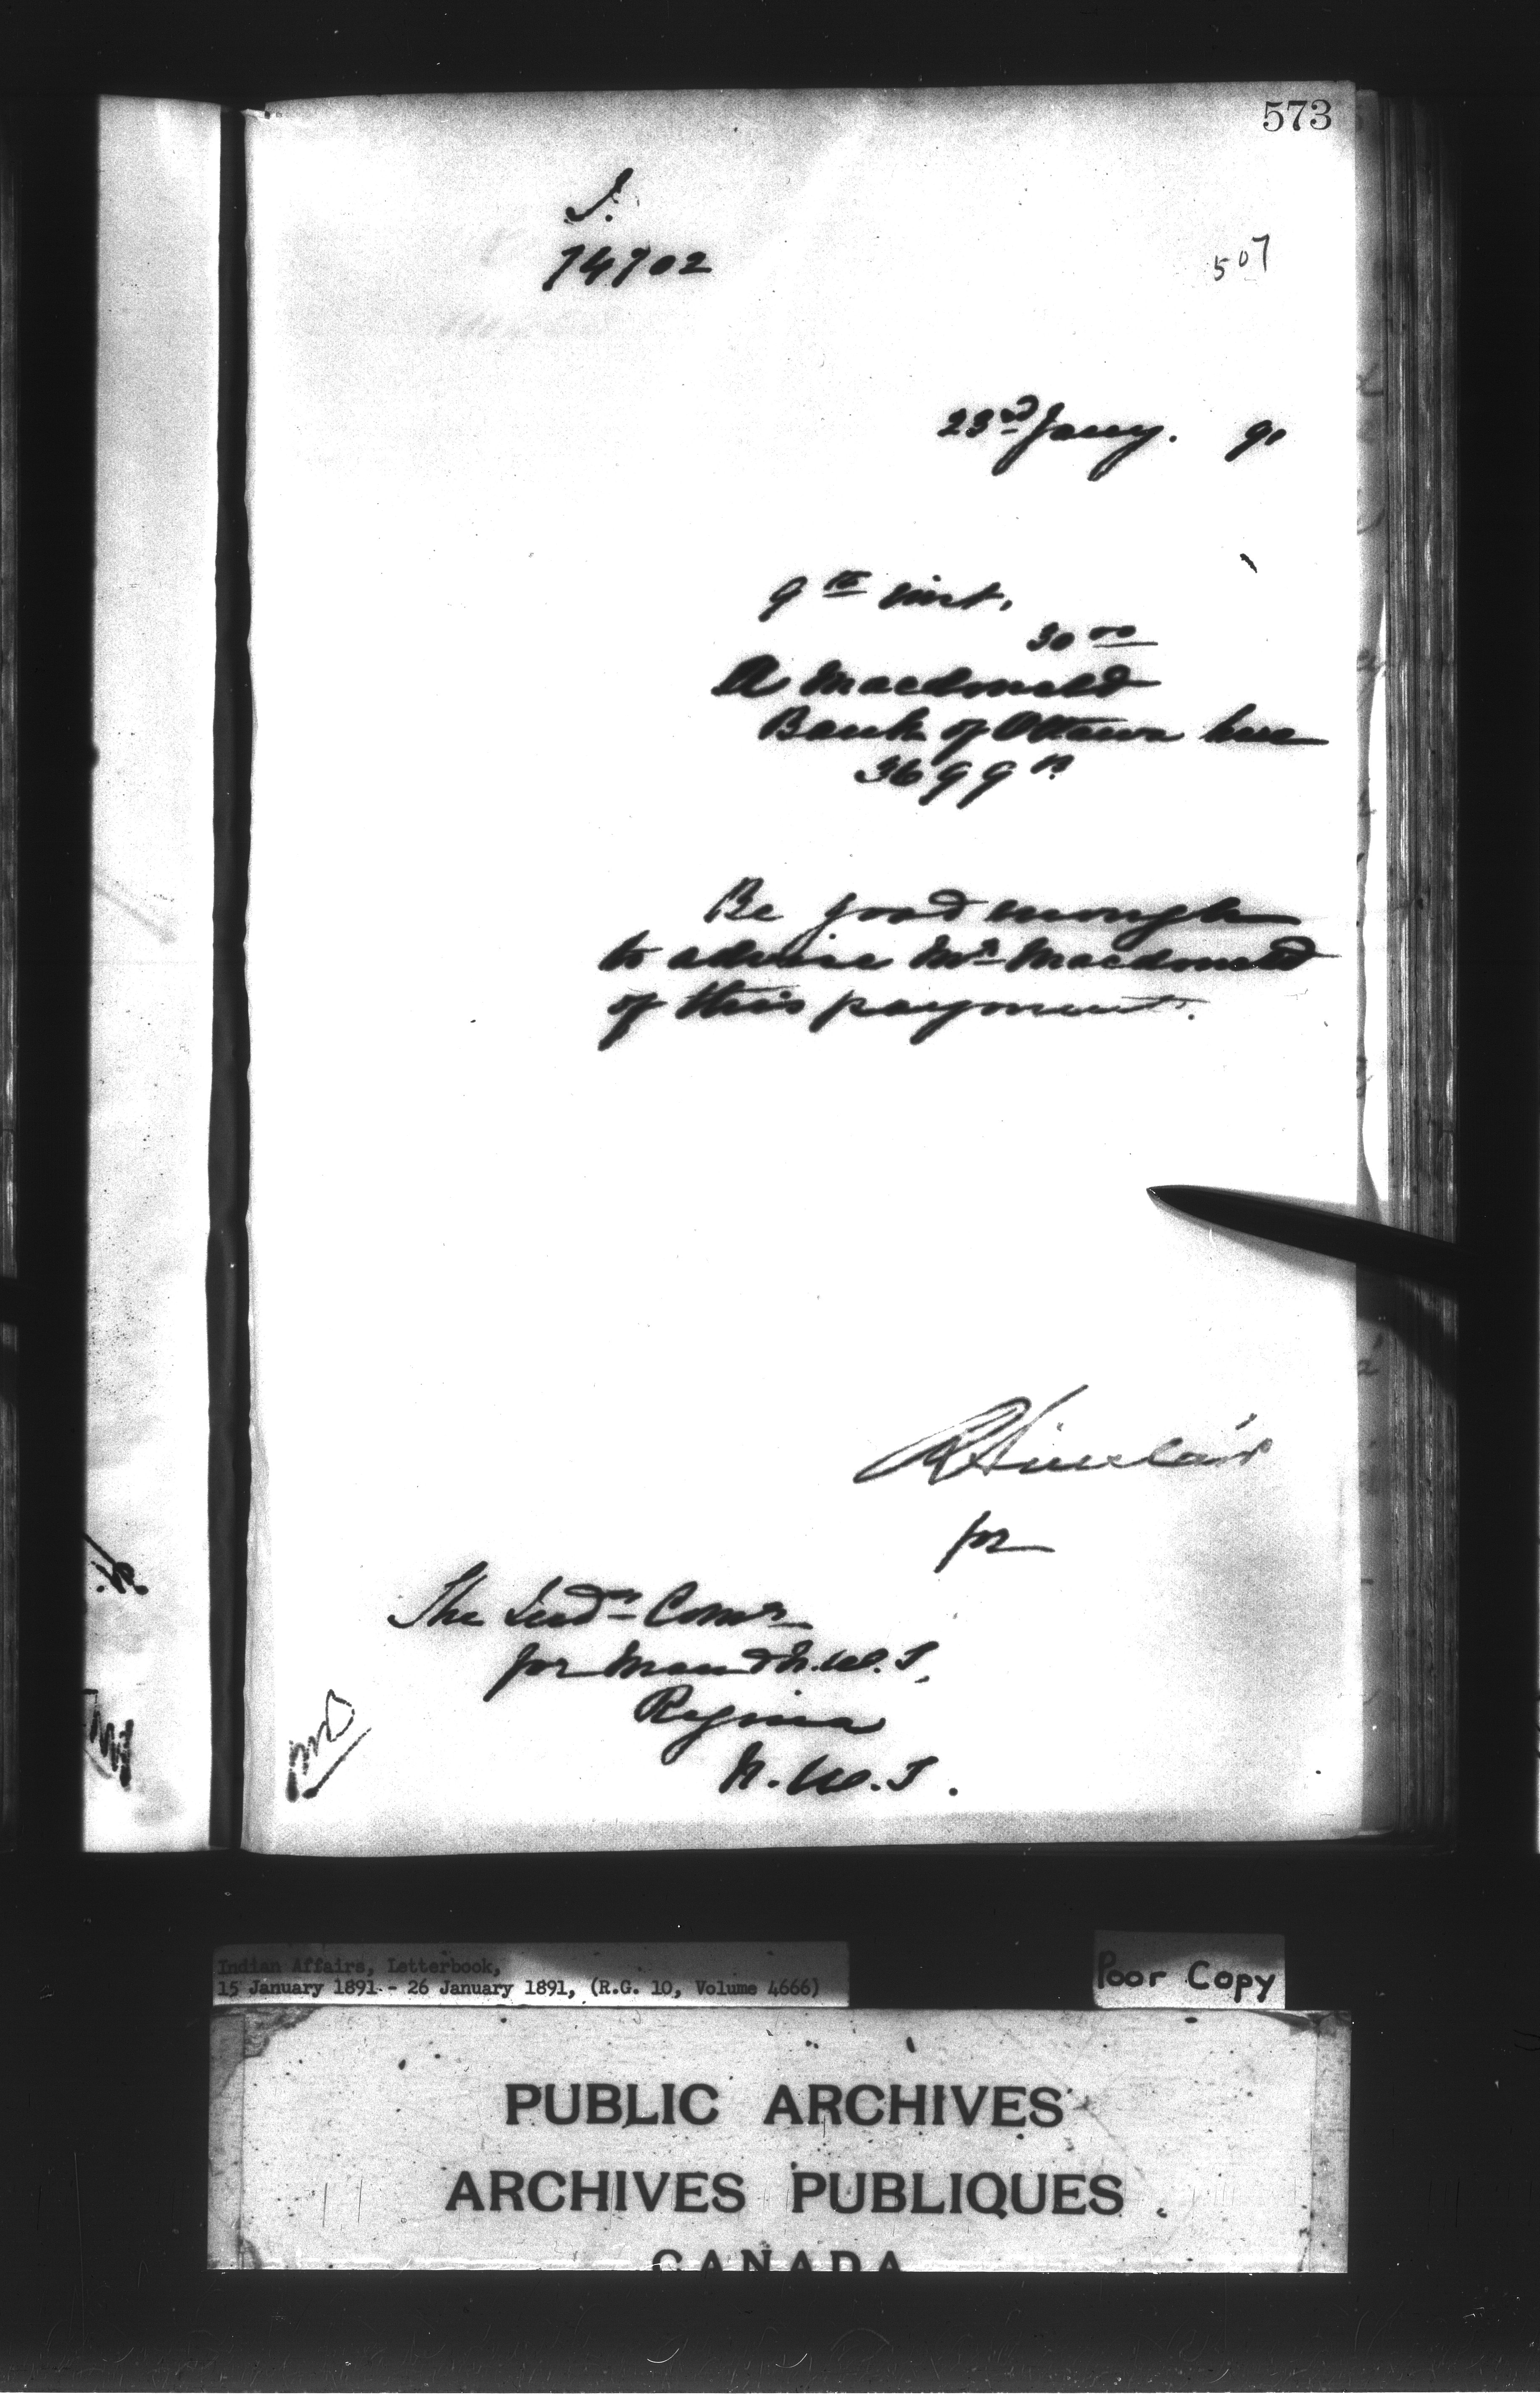 573
J.
74702
507
23rd Jany. 91
9th inst.
30 00
A Macdonald
Bank of Ottawa here
3699
Be good enough
to advise Mr Macdonald
of this payment.
R Sinclair
for
The Indn Comr
for Man & N.W.T.
Regina
N.W.T.
Indian Affairs, Letterbook,
15 January 1891 - 26 January 1891, (R.G. 10, Volume 4666)
Poor Copy
PUBLIC ARCHIVES
ARCHIVES PUBLIQUES
CANADA